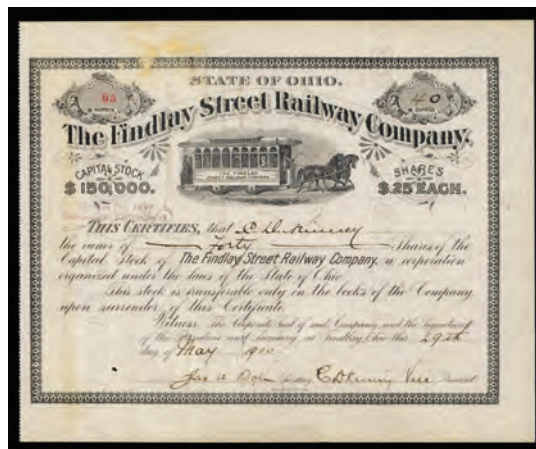 STATE OF OHIO.
93
NUMBER
40
SHARES
The Findlay Street Railway Company,
CAPITAL STOCK
$150,000.
SHARES
$25 EACH.
THE FINDLAY
STREET RAILWAY COMPANY
THIS CERTIFIES, that
the owner of forty Shares of the
Capital Stock of The Findlay Street Railway Company, a corporation
organized under the laws of the State of Ohio.
This stock is transferable only on the books of the Company
upon surrender of this Certificate.
Witness, the Corporate Seal of said Company, and the Signatures
of the President and Secretary at Findlay, Ohio this 29th
day of May 1900
Vice President